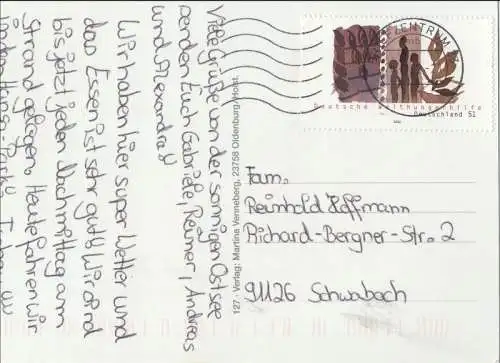 Viele Grüße von der sonnigen Ostsee
senden Euch Gabriele, Reiner, Andreas
und Alexandra!!
Wir haben hier super Wetter und
das Essen ist sehr gut!! Wir sind
bis jetzt jeden Nachmittag am
Strand gelegen. Heute fahren wir
in den Hansa-Park.
127 · Verlag: Martina Venneberg, 23758 Oldenburg/Holst.
Deutsche Welthungerhilfe
Deutschland 51
ZENTRUM
Fam.
Reinhold Hoffmann
Richard-Bergner-Str. 2
91126 Schwabach